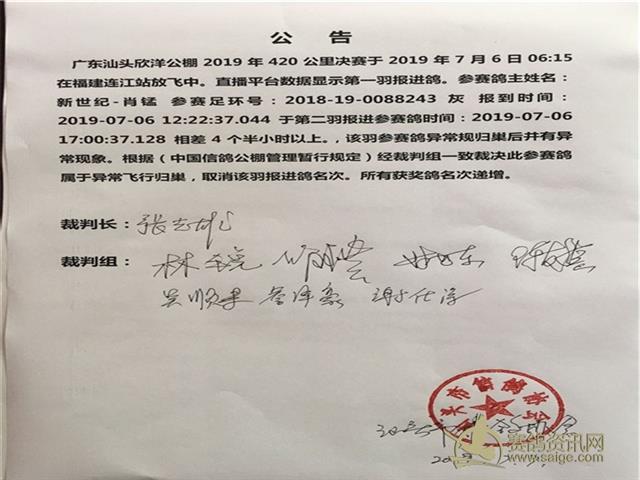 公 告
广东汕头欣洋公棚 2019 年 420 公里决赛于 2019 年 7 月 6 日 06:15
在福建连江站放飞中。直播平台数据显示第一羽报进鸽。参赛鸽主姓名:
新世纪-肖锰 参赛足环号:2018-19-0088243 灰 报到时间:
2019-07-06 12:22:37.044 于第二羽报进参赛鸽时间:2019-07-06
17:00:37.128 相差 4 个半小时以上。,该羽参赛鸽异常规归巢后并有异
常现象。根据(中国信鸽公棚管理暂行规定)经裁判组一致裁决此参赛鸽
属于异常飞行归巢,取消该羽报进鸽名次。所有获奖鸽名次递增。
裁判长:张志彬
裁判组:
赛鸽资讯网
www.saige.com